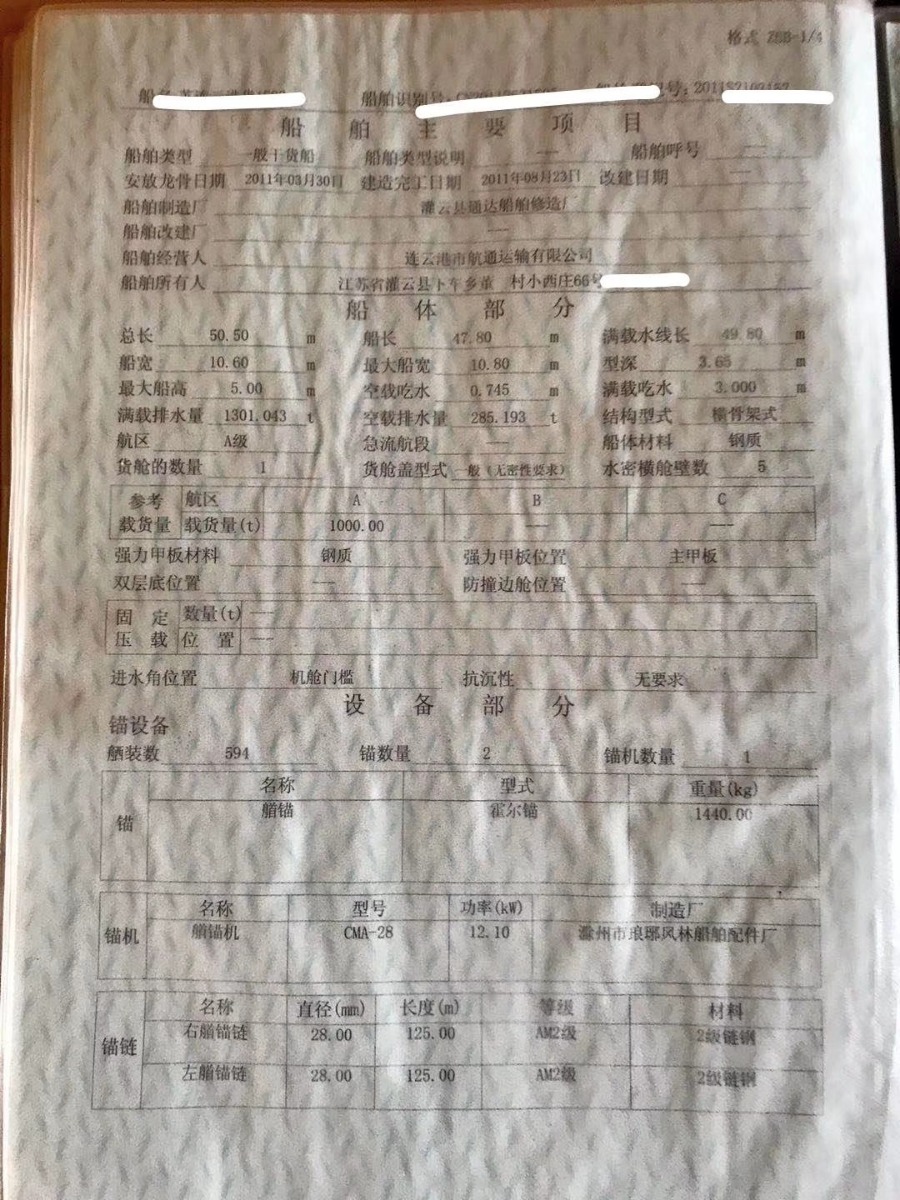 格式 ZSB-1/4
船 船舶识别号: 号:
船 舶 主 要 项 目
船舶类型 一般干货船 船舶类型说明 — 船舶呼号 —
安放龙骨日期 2011年03月30日 建造完工日期 2011年08月23日 改建日期 —
船舶制造厂 灌云县通达船舶修造厂
船舶改建厂 —
船舶经营人 连云港市航通运输有限公司
船舶所有人 江苏省灌云县下车乡董 村小西庄66号
船 体 部 分
总长 50.50 m 船长 47.80 m 满载水线长 49.80 m
船宽 10.60 m 最大船宽 10.80 m 型深 3.65 m
最大船高 5.00 m 空载吃水 0.745 m 满载吃水 3.000 m
满载排水量 1301.043 t 空载排水量 285.193 t 结构型式 横骨架式
航区 A级 急流航段 — 船体材料 钢质
货舱的数量 1 货舱盖型式 一般（无密性要求） 水密横舱壁数 5
参考 航区 A B C
载货量 载货量(t) 1000.00 — —
强力甲板材料 钢质 强力甲板位置 主甲板
双层底位置 — 防撞边舱位置 —
固 定 数量(t) —
压 载 位 置 —
进水角位置 机舱门槛 抗沉性 无要求
设 备 部 分
锚设备
舾装数 594 锚数量 2 锚机数量 1
名称 型式 重量(kg)
锚 艏锚 霍尔锚 1440.00
名称 型号 功率(kW) 制造厂
锚机 艏锚机 CMA-28 12.10 滁州市琅琊风林船舶配件厂
名称 直径(mm) 长度(m) 等级 材料
锚链 右艏锚链 28.00 125.00 AM2级 2级链钢
左艏锚链 28.00 125.00 AM2级 2级链钢